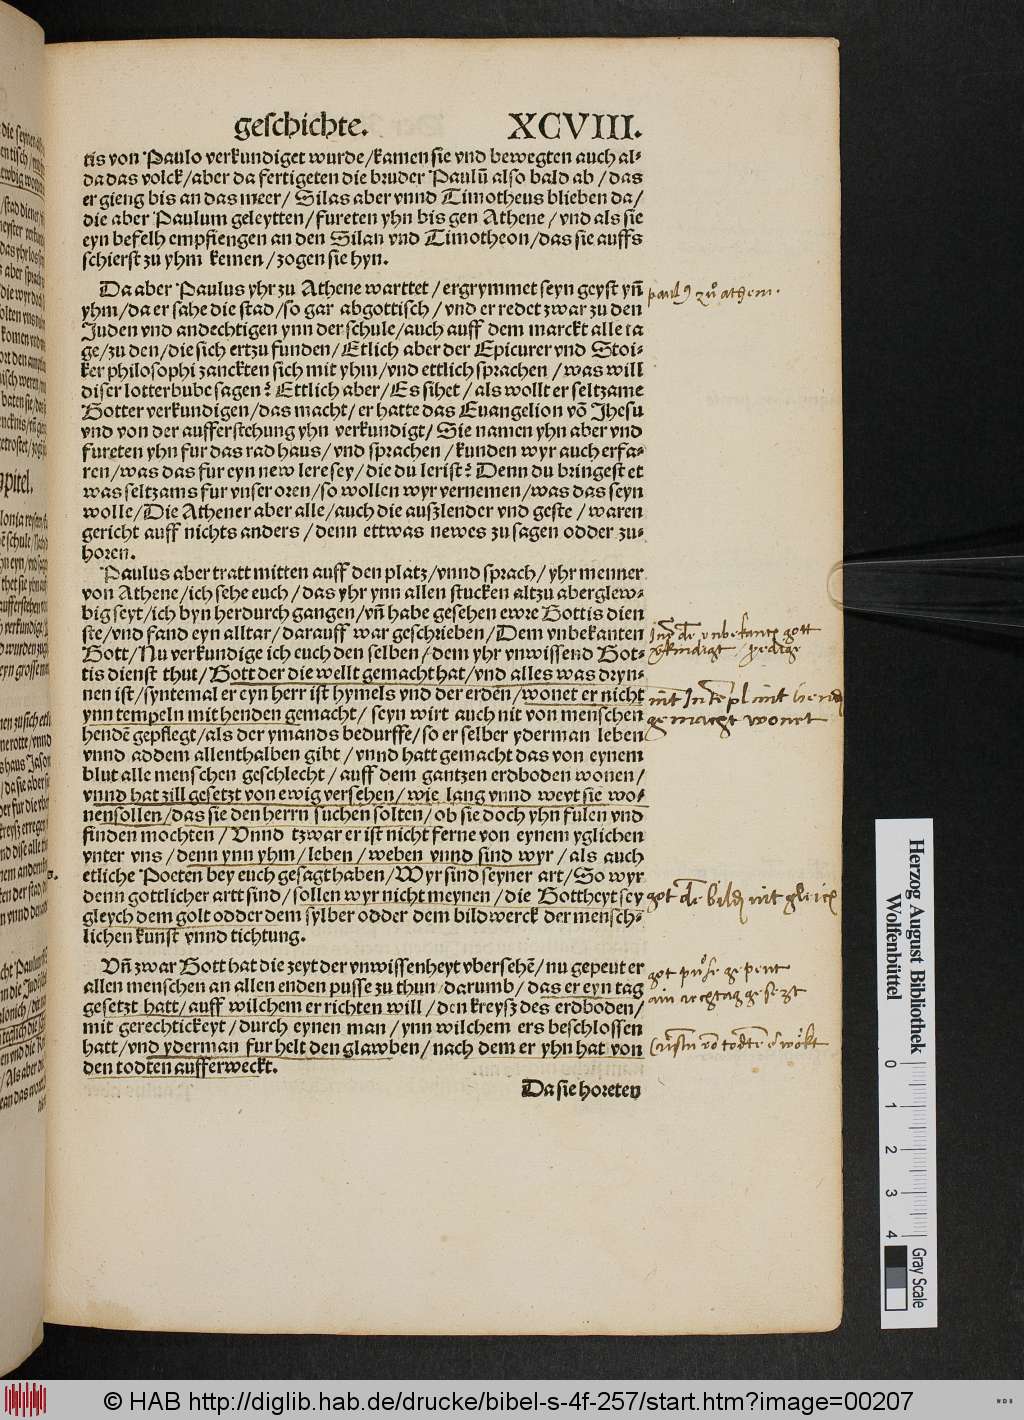 geschichte. XCVIII.
tis von Paulo verkundiget wurde/kamen sie vnd bewegten auch al-
da das volck/aber da fertigeten die bruder Paulū also bald ab/das
er gieng bis an das meer/Silas aber vnnd Timotheus blieben da/
die aber Paulum geleytten/fureten yhn bis gen Athene/vnd als sie
eyn befelh empfiengen an den Silan vnd Timotheon/das sie auffs
schierst zu yhm kemen/zogen sie hyn.
Da aber Paulus yhr zu Athene warttet/ergrymmet seyn geyst yñ
yhm/da er sahe die stad/so gar abgottisch/vnd er redet zwar zu den
Juden vnd andechtigen ynn der schule/auch auff dem marckt alle ta
ge/zu den/die sich ertzu funden/Etlich aber der Epicurer vnd Stoi-
ker philosophi zanckten sich mit yhm/vnd ettlich sprachen/was will
diser lotterbube sagen? Ettlich aber/Es sihet/als wollt er seltzame
Gotter verkundigen/das macht/er hatte das Euangelion võ Jhesu
vnd von der aufferstehung yhn verkundigt/Sie namen yhn aber vnd
fureten yhn fur das rad haus/vnd sprachen/kunden wyr auch erfa-
ren/was das fur eyn new lere sey/die du lerist? Denn du bringest et
was seltzams fur vnser oren/so wollen wyr vernemen/was das seyn
wolle/Die Athener aber alle/auch die auszlender vnd geste/waren
gericht auff nichts anders/denn ettwas newes zu sagen odder zu-
horen.
Paulus aber tratt mitten auff den platz/vnnd sprach/yhr menner
von Athene/ich sehe euch/das yhr ynn allen stucken altzu aberglew-
big seyt/ich byn herdurch gangen/vñ habe gesehen ewre Gottis dien
ste/vnd fand eyn alltar/darauff war geschrieben/Dem vnbekanten
Gott/Nu verkundige ich euch den selben/dem yhr vnwissend Got-
tis dienst thut/Gott der die wellt gemacht hat/vnd alles was dryn-
nen ist/syntemal er eyn herr ist hymels vnd der erden/wonet er nicht
ynn tempeln mit henden gemacht/seyn wirt auch nit von menschen
hendē gepflegt/als der ymands bedurffe/so er selber yderman leben
vnnd addem allenthalben gibt/vnnd hatt gemacht das von eynem
blut alle menschen geschlecht/auff dem gantzen erdboden wonen/
vnnd hat zill gesetzt von ewig versehen/wie lang vnnd weyt sie wo-
nen sollen/das sie den herrn suchen solten/ob sie doch yhn fulen vnd
finden mochten/Vnnd tzwar er ist nicht ferne von eynem yglichen
vnter vns/denn ynn yhm/leben/weben vnnd sind wyr/als auch
etliche Poeten bey euch gesagt haben/Wyr sind seyner art/So wyr
denn gottlicher artt sind/sollen wyr nicht meynen/die Gottheyt sey
gleych dem golt odder dem sylber odder dem bildwerck der mensch-
lichen kunst vnnd tichtung.
Vñ zwar Gott hat die zeyt der vnwissenheyt vbersehē/nu gepeut er
allen menschen an allen enden pusse zu thun darumb/das er eyn tag
gesetzt hatt/auff wilchem er richten will/den kreysz des erdboden/
mit gerechtickeyt/durch eynen man/ynn wilchem ers beschlossen
hatt/vnd yderman fur helt den glawben/nach dem er yhn hat von
den todten aufferweckt.
Da sie horeten
paulꝰ zů athem.
vnbekantē gott
nit Jn templ mit hend
gemacht wonet
got bild nit gleich
got půse gepeut
ain tag gesezt
Herzog August Bibliothek
Wolfenbüttel
0 1 2 3 4
Gray Scale
© HAB http://diglib.hab.de/drucke/bibel-s-4f-257/start.htm?image=00207